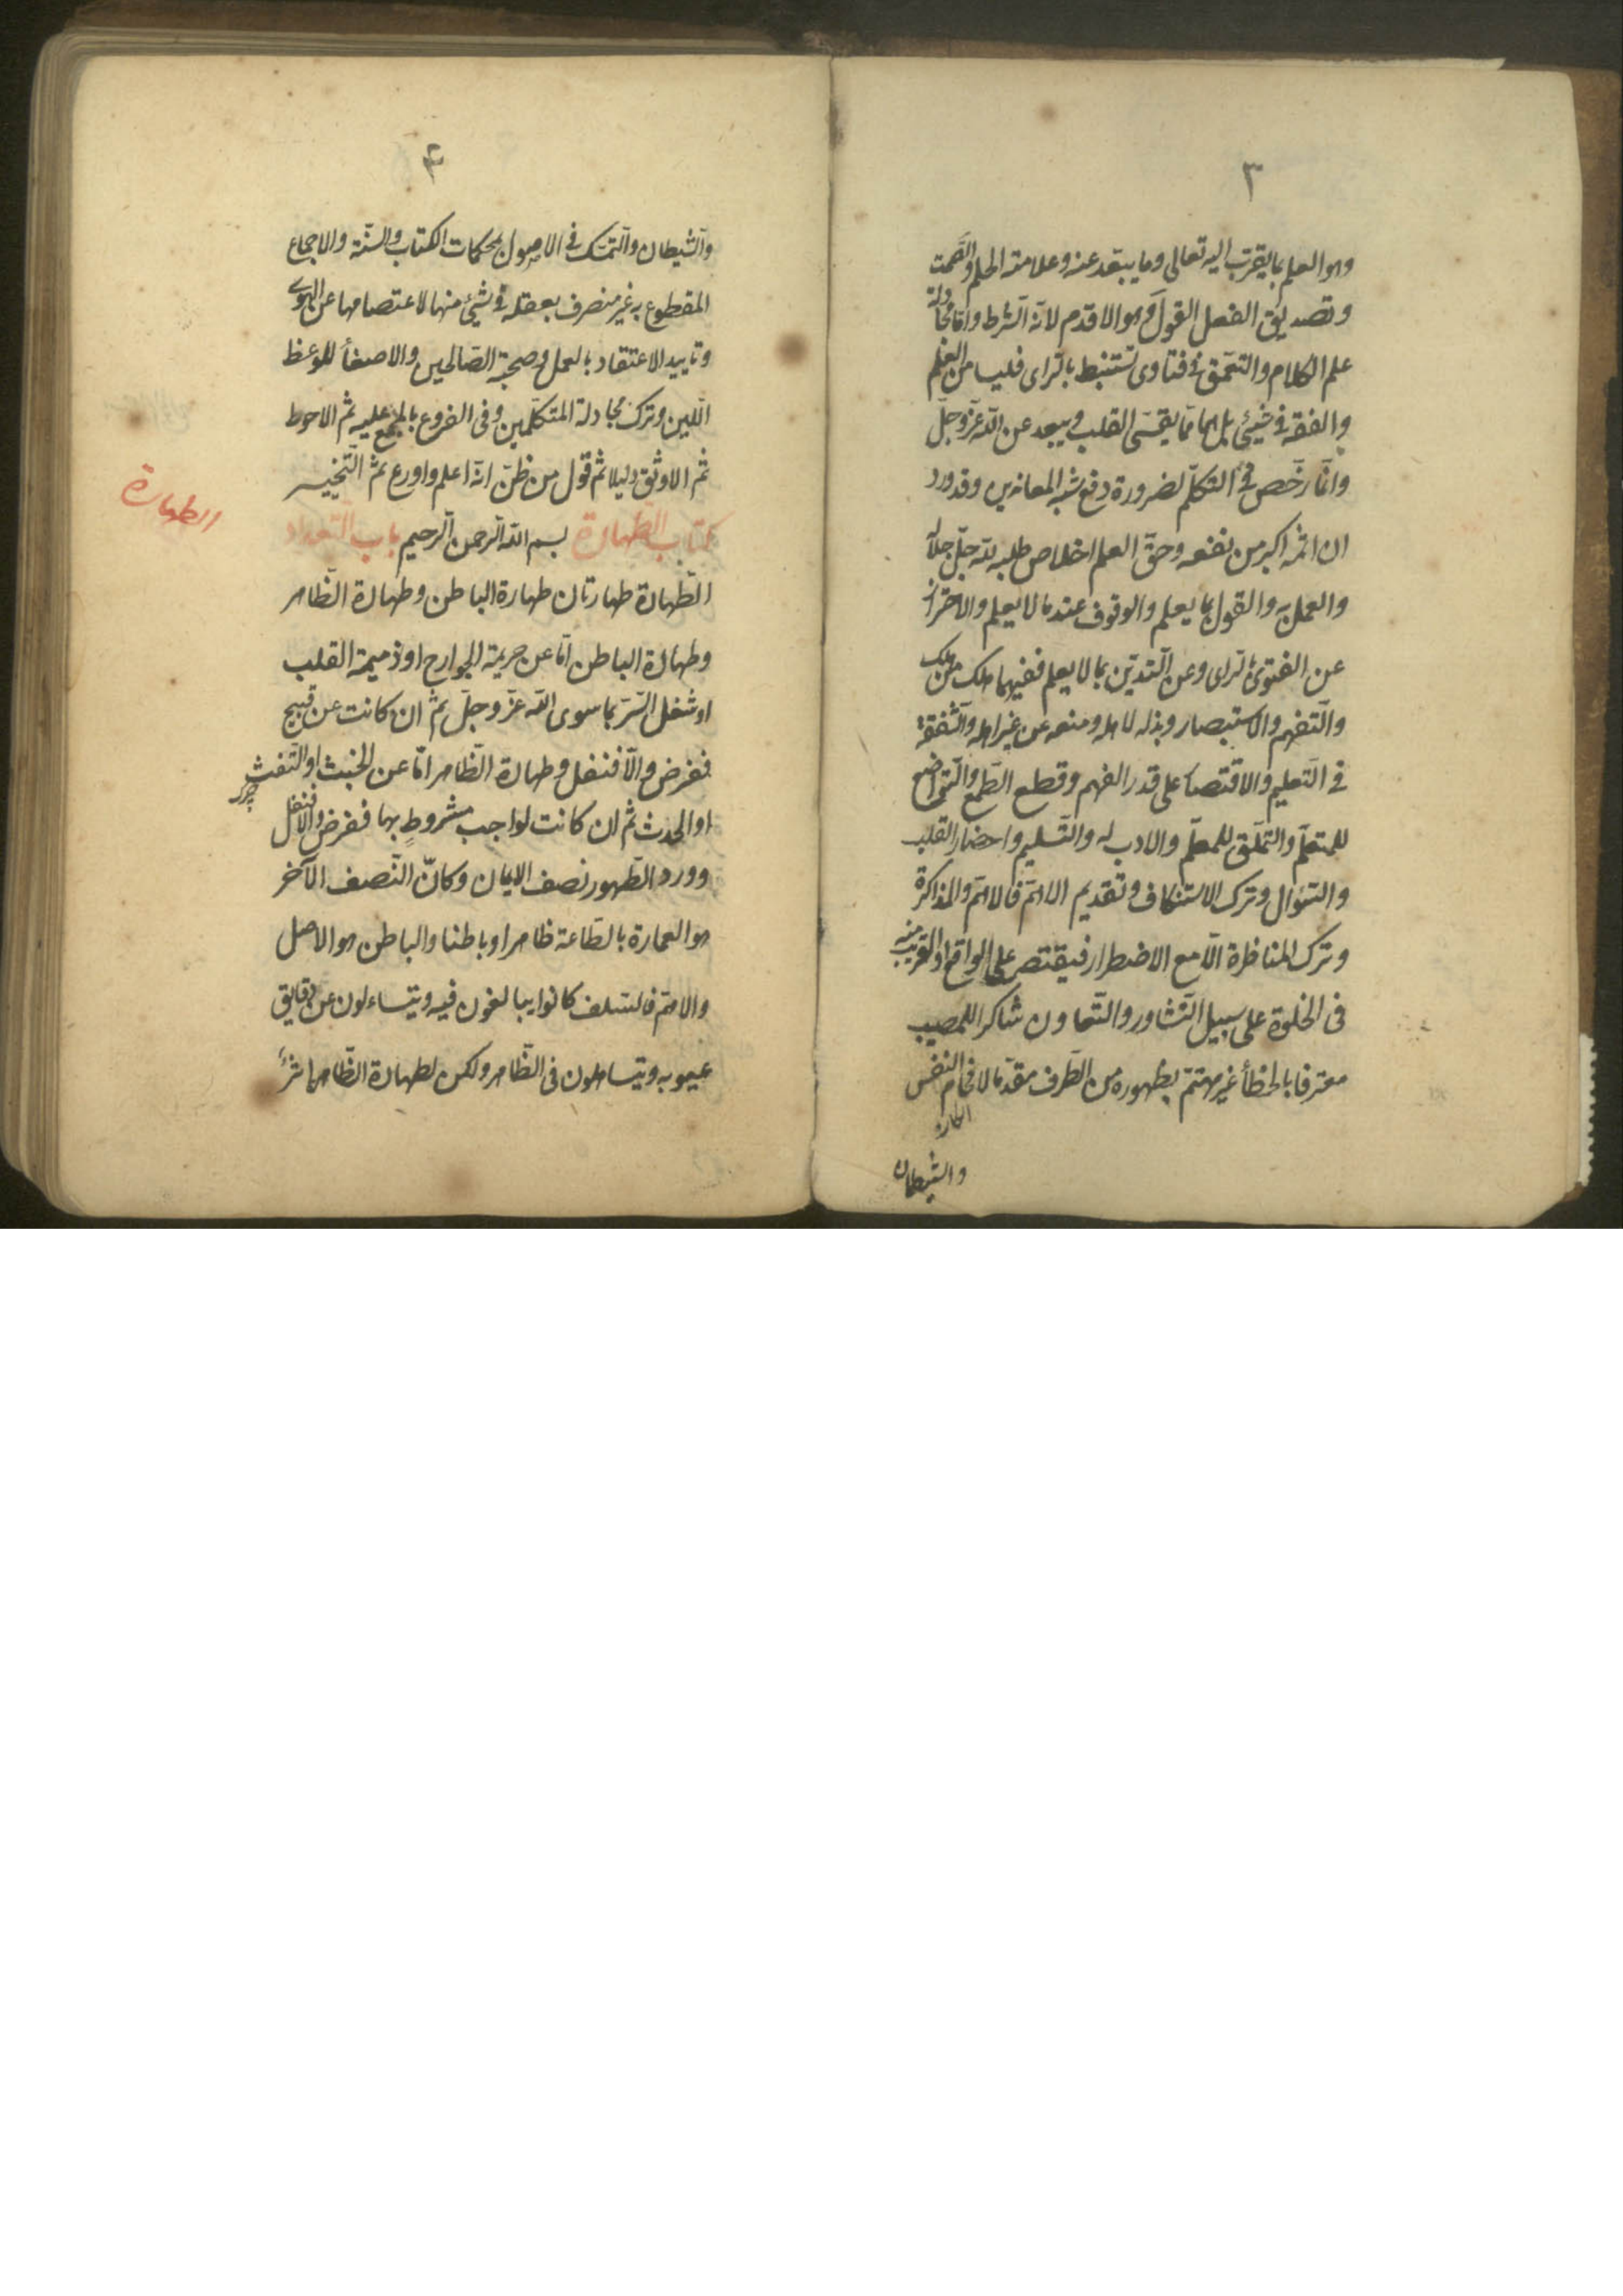 ٣
وهو العلم بما يقرب اليه تعالى وما يبعد عنه وعلامته الحلم والصمت
وتصديق الفعل القول وهو الاقدم لانه الشرط واما مجادلة
علم الكلام والتعمق في فتاوى تستنبط بالراى فليسا من العلم
والفقه في شيئ بل هما مما يقسى القلب ويبعد عن الله عز وجل
وانما رخص في التكلم لضرورة دفع شبه المعاندين وقد ورد
ان اثمه اكبر من نفعه وحق العلم اخلاص طلبه لله جل جلاله
والعمل به والقول بما يعلم والوقوف عند ما لا يعلم والاحتراز
عن الفتوى بالراى وعن التدين بما لا يعلم ففيهما هلك من هلك
والتفهم والاستبصار وبذله لاهله ومنعه عن غير اهله والشفقة
في التعليم والاقتصار على قدر الفهم وقطع الطمع والتواضع
للمتعلم والتملق للمعلم والادب له والتسليم واحضار القلب
والسؤال وترك الاستنكاف وتقديم الاهم فالاهم والمذاكرة
وترك المناظرة الا مع الاضطرار فيقتصر على الواقع او القريب منه
فى الخلوة على سبيل التشاور والتعاون شاكرا للمصيب
معترفا بالخطأ غير مهتم بظهوره من الطرف مقدما لافحام النفس
والشيطان
٤
والشيطان والتمسك في الاصول بمحكمات الكتاب والسنة والاجماع
المقطوع به غير منصرف بعقله في شيئ منها لاعتصامها عن الهوى
وتاييد الاعتقاد بالعمل وصحبة الصالحين والاصغأ للوعظ
اللين وترك مجادلة المتكلمين وفى الفروع بالمجمع عليه ثم الاحوط
ثم الاوثق دليلا ثم قول من ظن انه اعلم واورع ثم التخيير
كتاب الطهارة بسم الله الرحمن الرحيم باب التعداد
الطهارة
الطهارة طهارتان طهارة الباطن وطهارة الظاهر
وطهارة الباطن اما عن جريمة الجوارح او ذميمة القلب
او شغل السر بما سوى الله عز وجل ثم ان كانت عن قبيح
ففرض والا فنفل وطهارة الظاهر اما عن الخبث او التفث
او الحدث ثم ان كانت لواجب مشروط بها ففرض والا فنفل
وورد الطهور نصف الايمان وكان النصف الآخر
هو العمارة بالطاعة ظاهرا وباطنا والباطن هو الاصل
والاهم فالسلف كانوا يبالغون فيه ويتساءلون عن دقايق
عيوبه ويتساهلون فى الظاهر ولكن لطهارة الظاهر اثرأ